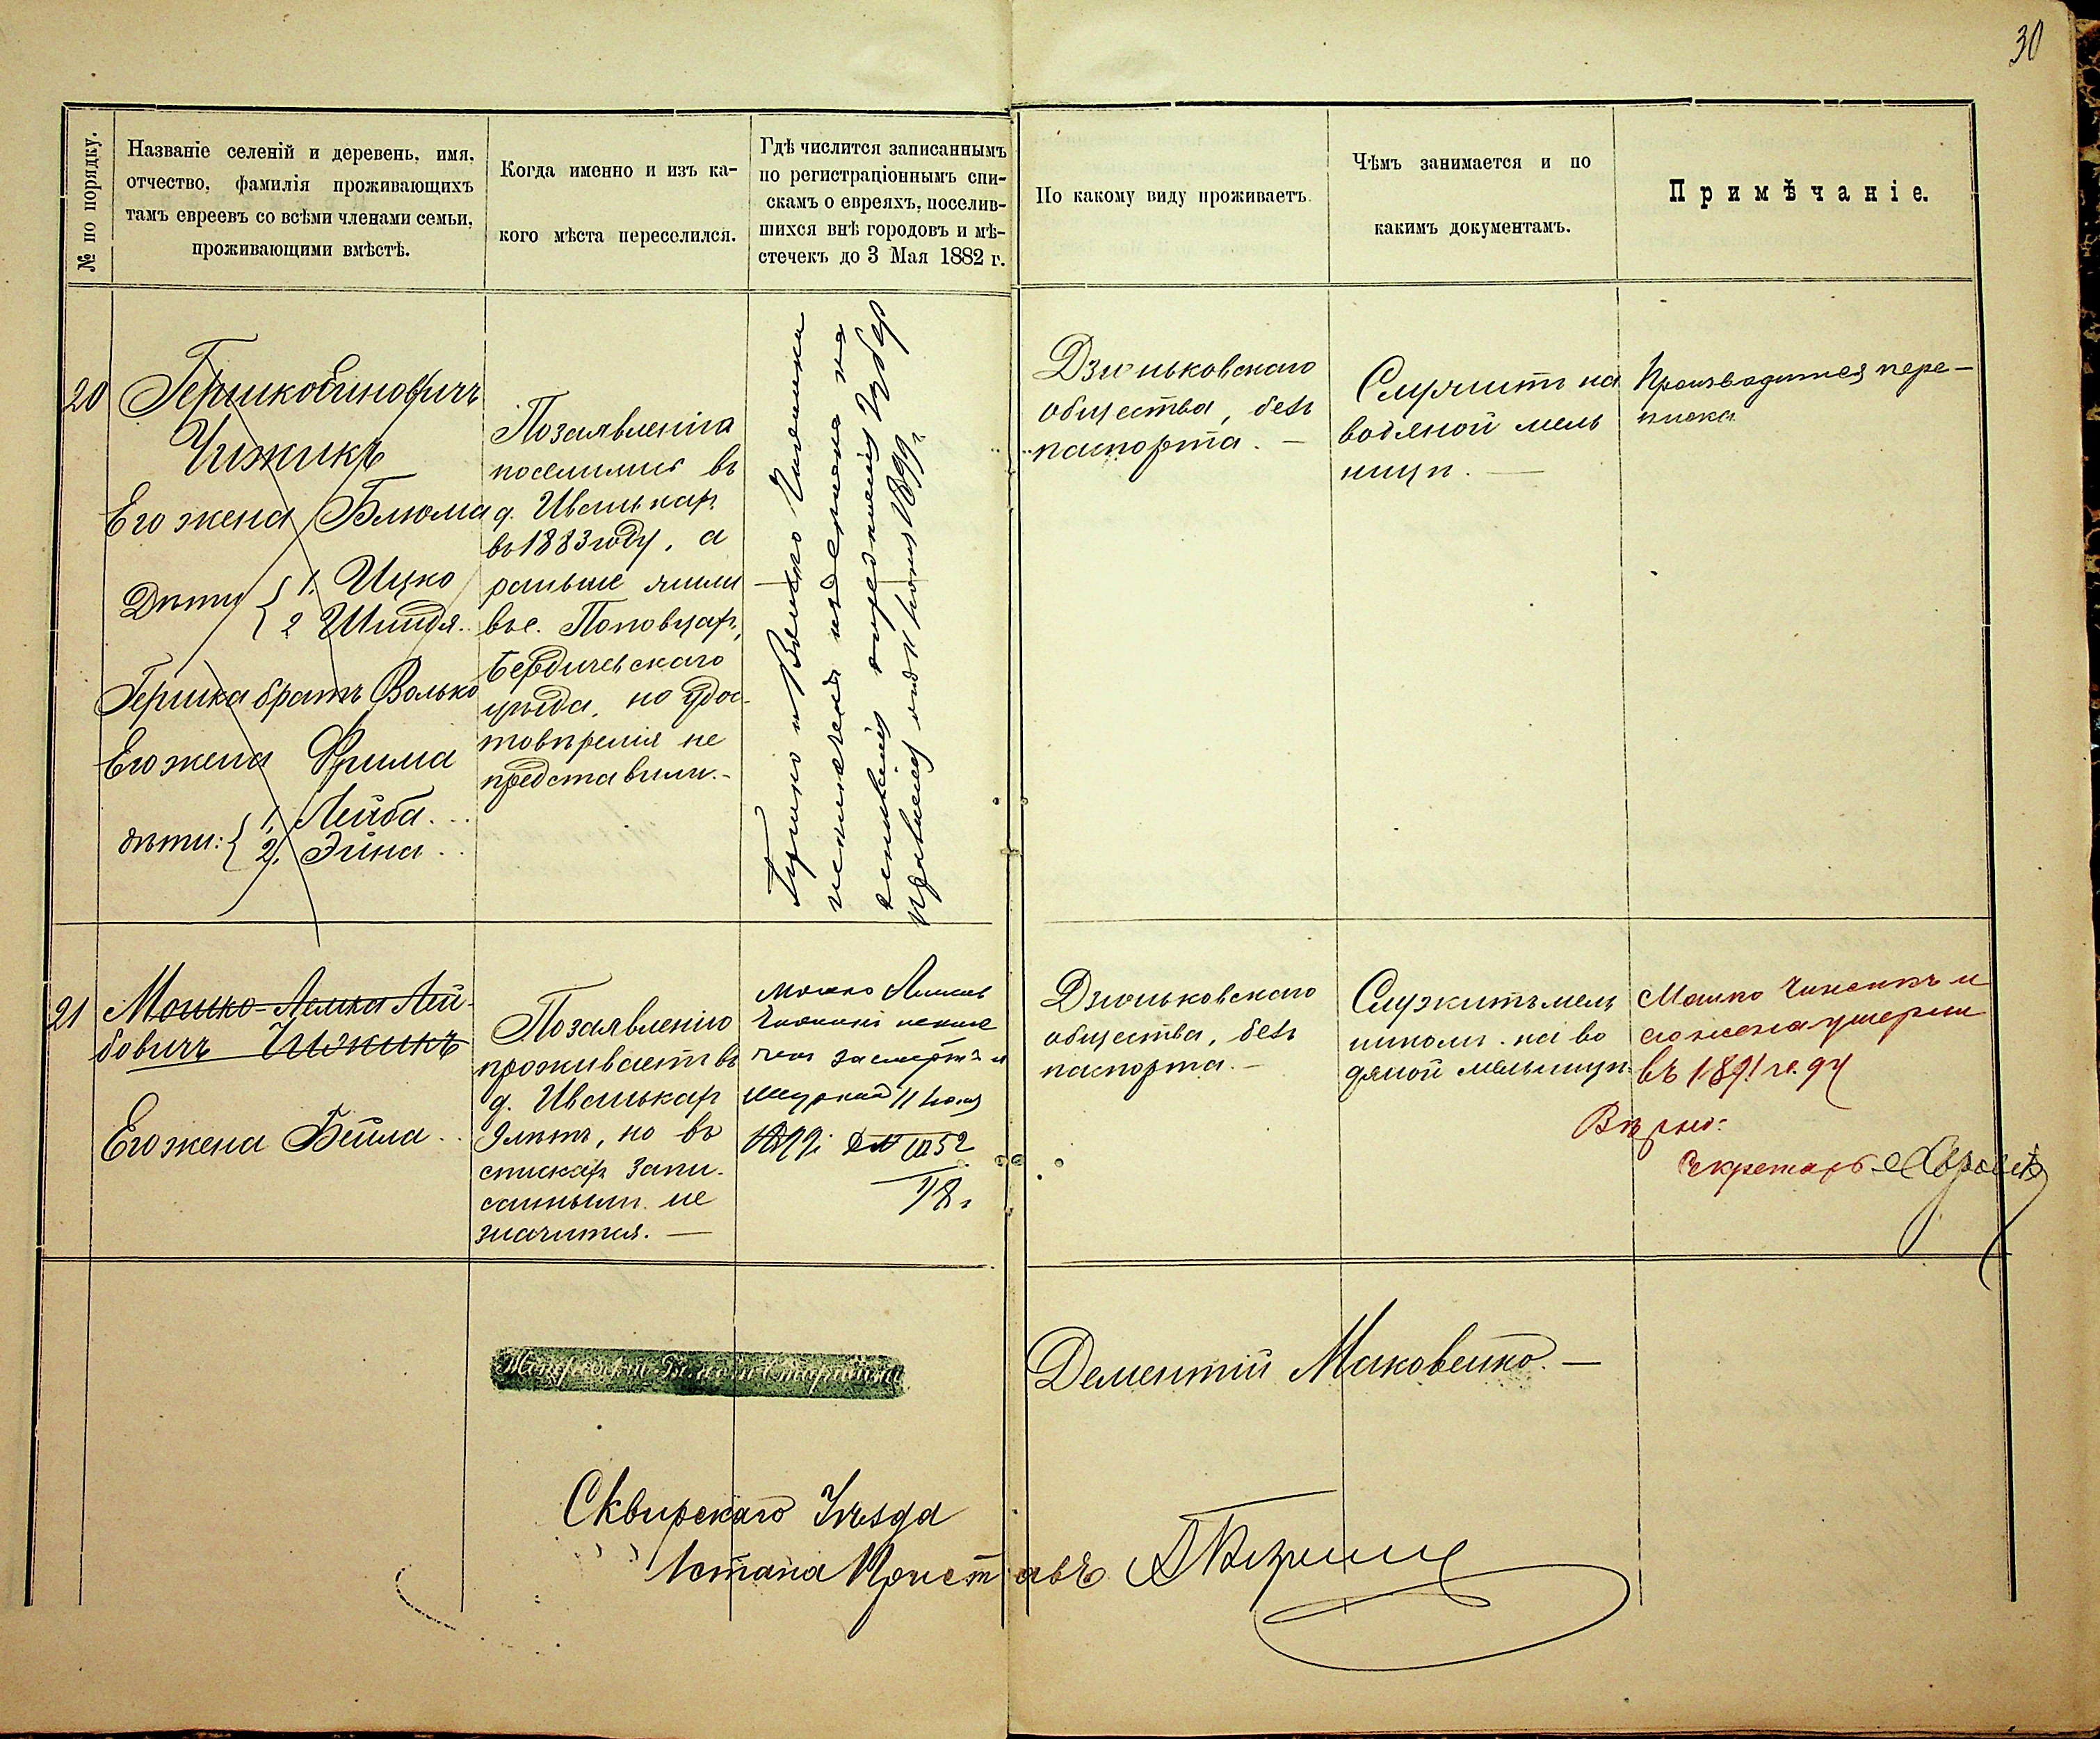 30
№ по порядку.
Названіе селеній и деревень, имя,
отчество, фамилія проживающихъ
тамъ евреевъ со всѣми членами семьи,
проживающими вмѣстѣ.
Когда именно и изъ ка-
кого мѣста переселился.
Гдѣ числится записаннымъ
по регистраціоннымъ спи-
скамъ о евреяхъ, поселив-
шихся внѣ городовъ и мѣ-
стечекъ до 3 Мая 1882 г.
По какому виду проживаетъ.
Чѣмъ занимается и по
какимъ документамъ.
Примѣчаніе.
20
Чижикъ
Его жена Блюма
Дѣти { 1. Ицко
2 Шиндя..
Гершка братъ Волько
Его жена Фрима
дѣти: { 1, Лейба...
2, Эйна..
По заявленію
поселились въ
д. Иванькахъ
въ 1883 году, а
раньше жили
въ с. Поповцахъ,
Бердичевскаго
уѣзда, но удос-
товѣренія не
представили.-
Гершко и Волько Чижики
Дзюньковскаго
общества, безъ
паспорта. —
Служитъ на
водяной мель
ницѣ. —
Производится пере-
писка
21
Мошко-Лемка Лей-
бовичъ Чижикъ
Его жена Бейла..
По заявленію
проживаетъ въ
д. Иванькахъ
9 лѣтъ, но въ
спискахъ запи-
саннымъ не
значится. —
Мошко
Чижикъ
11 Іюня
Дзюньковскаго
общества, безъ
паспорта.—
Служитъ мель
никомъ на во
дяной мельницѣ.
Мошко Чижикъ и
его жена умерли
въ 1891 году
Вѣрно:
Секретарь
Дементій Маковенко.—
Сквирскаго Уѣзда
1 стана Приставъ